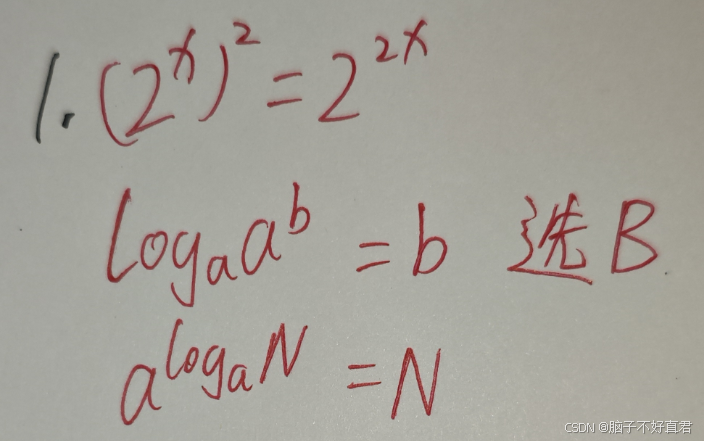 1. (2^x)^2 = 2^{2x}
log_a a^b = b 选B
a^{log_a N} = N
CSDN @脑子不好直君